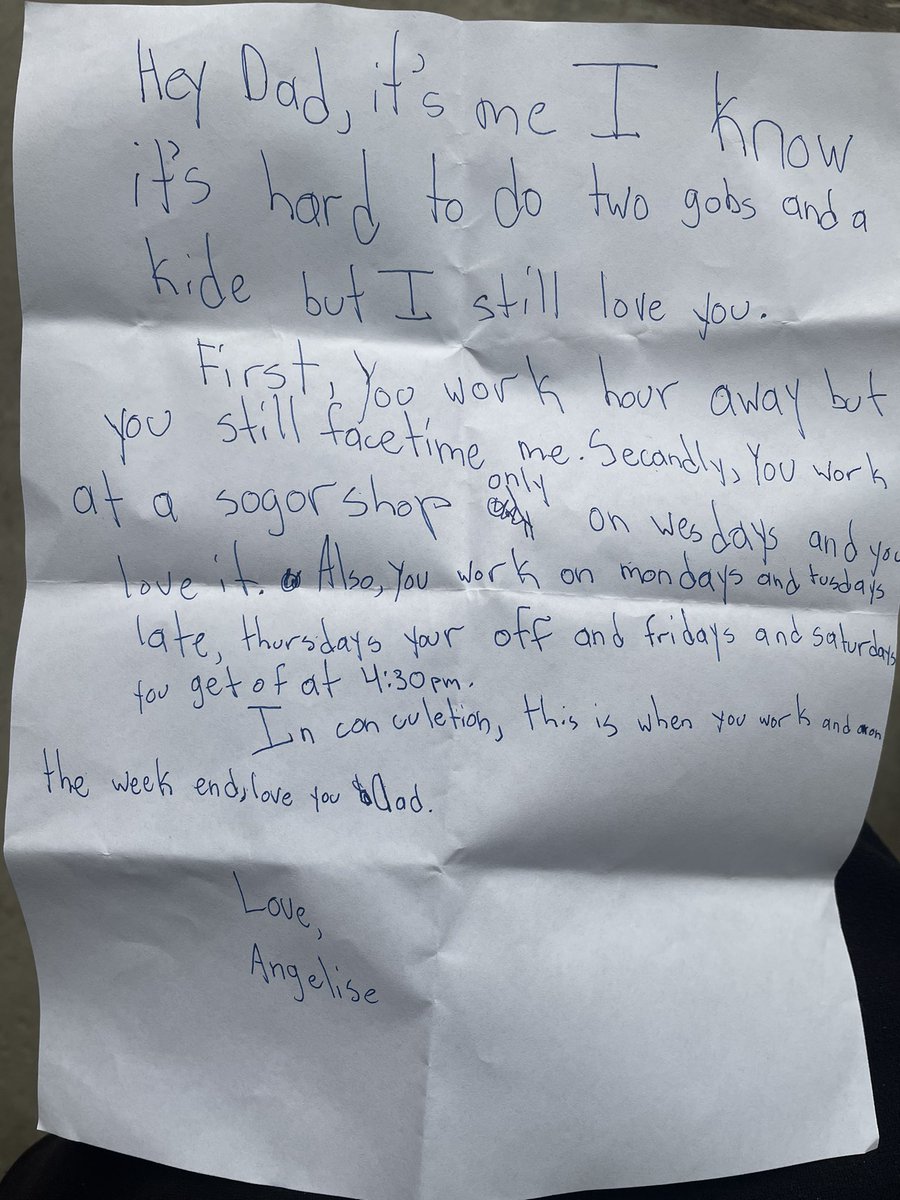 Hey Dad, it's me I know
it's hard to do two gobs and a
kide but I still love you.
First, you work hour away but
you still facetime me. Secandly, You work
at a sogor shop only on wesdays and you
love it. Also, you work on mondays and tusdays
late, thursdays your off and fridays and saturdays
you get of at 4:30pm.
In con culetion, this is when you work and on
the week end, love you Dad.
Love,
Angelise